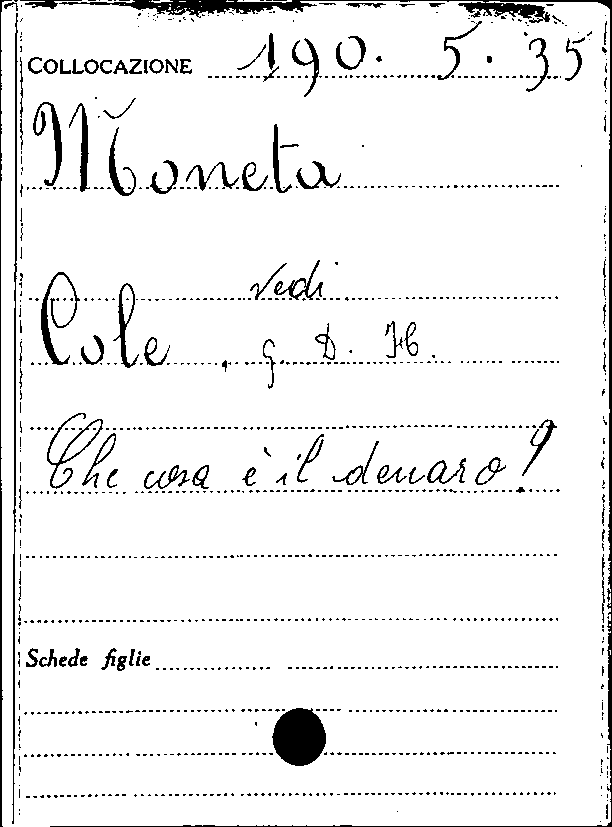 COLLOCAZIONE 190. 5. 35
Moneta
vedi
Cole, G. D. H.
Che cosa è il denaro?
Schede figlie